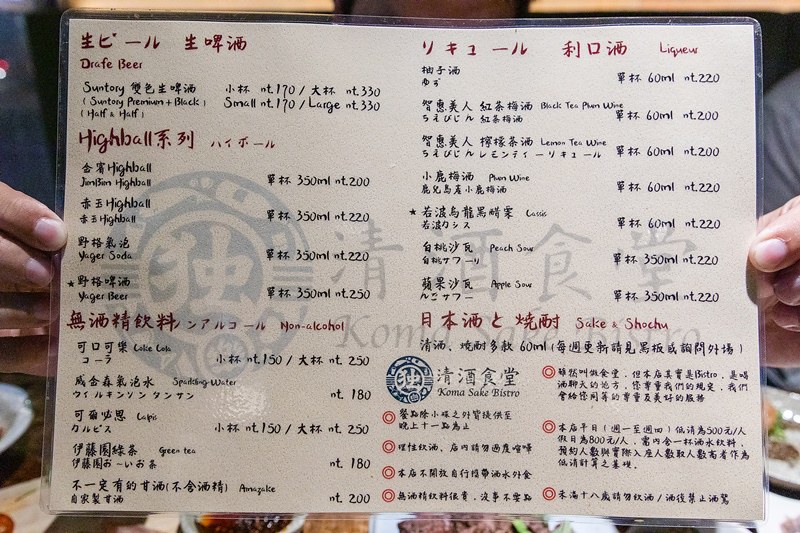 生ビール 生啤酒
Drafe Beer
Suntory 雙色生啤酒 小杯 nt.170 / 大杯 nt.330
(Suntory Premium + Black) Small nt.170 / Large nt.330
(Half & Half)
Highball系列 ハイボール
金賓Highball
JimBim Highball 單杯 350ml nt.200
赤玉Highball
赤玉Highball 單杯 350ml nt.220
野格氣泡
Yager Soda 單杯 350ml nt.220
★野格啤酒
Yager Beer 單杯 350ml nt.250
無酒精飲料 ノンアルコール Non-alcohol
可口可樂 Coke Cola
コーラ 小杯 nt.150 / 大杯 nt.250
威金森氣泡水 Sparkling Water
ウイルキンソン タンサン nt. 180
可爾必思 Lapis
カルピス 小杯 nt.150 / 大杯 nt.250
伊藤園綠茶 Green tea
伊藤園お～いお茶 nt. 180
不一定有的甘酒(不含酒精) Amazake
自家製甘酒 nt. 200
リキュール 利口酒 Liqueur
柚子酒
ゆず 單杯 60ml nt.220
智惠美人 紅茶梅酒 Black Tea Plum Wine
ちえびじん 紅茶梅酒 單杯 60ml nt.200
智惠美人 檸檬茶酒 Lemon Tea Wine
ちえびじん レモンティーリキュール 單杯 60ml nt.200
小鹿梅酒 Plum Wine
鹿兒島產小鹿梅酒 單杯 60ml nt.220
★若波烏龍黑醋栗 Cassis
若波カシス 單杯 60ml nt.220
白桃沙瓦 Peach Sour
白桃サワーリ 單杯 350ml nt.220
蘋果沙瓦 Apple Sour
りんごサワー 單杯 350ml nt.220
日本酒と焼酎 Sake & Shochu
清酒、燒酎多款 60ml (每週更新請見黑板或詢問外場)
独 清酒食堂
Koma Sake Bistro
餐點除小味之外皆提供至
晚上十一點為止
理性飲酒、店內請勿過度喧嘩
本店不開放自行攜帶酒水外食
無酒精飲料很貴，沒事不要點
雖然叫做食堂，但本店其實是Bistro，是喝
酒聊天的地方，您尊重我們的規定，我們
會給您同等的尊重及美好的服務
本店平日(週一至週四)低消為500元/人
假日為800元/人，需內含一杯酒水飲料，
預約人數與實際入座人數取人數高者作為
低消計算之基礎。
未滿十八歲請勿飲酒/酒後禁止酒駕
独 清酒食堂
Koma Sake Bistro